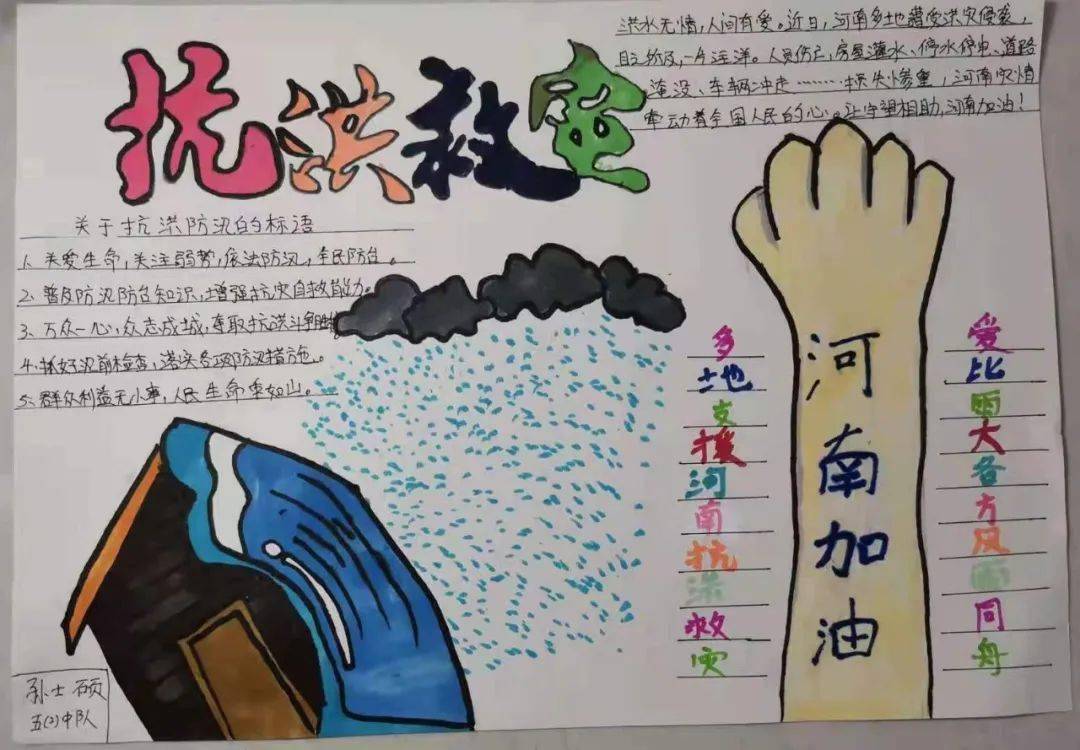 抗洪救灾
洪水无情，人间有爱。近日，河南多地遭受洪灾侵袭，
目之所及，一片汪洋。人员伤亡，房屋灌水、停水停电、道路
淹没、车辆冲走………损失惨重，河南灾情
牵动着全国人民的心。让守望相助，河南加油！
关于抗洪防汛的标语
1、关爱生命，关注弱势，依法防汛，全民防台。
2、普及防汛防台知识，增强抗灾自救能力。
3、万众一心，众志成城，夺取抗洪斗争胜
4、抓好汛前检查，落实各项防汛措施。
5、群众利益无小事，人民生命重如山。
多地支援河南抗洪救灾
河南加油
爱比雨大各方风雨同舟
孙士硕
五(2)中队